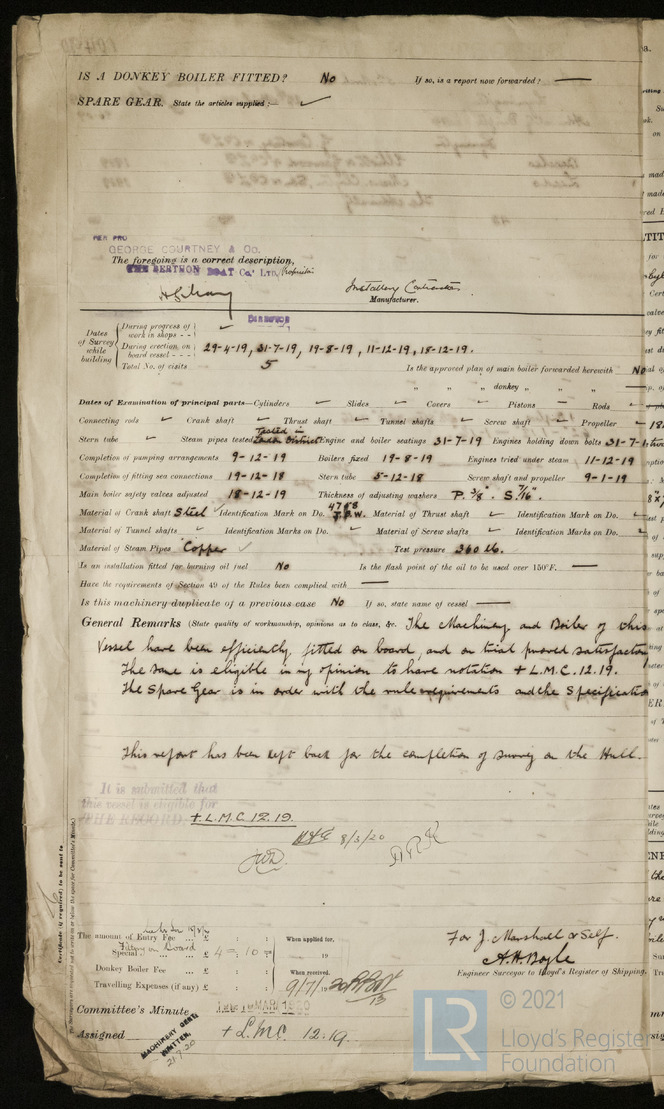 IS A DONKEY BOILER FITTED? No If so, is a report now forwarded? —
SPARE GEAR. State the articles supplied:— ✓
PER PRO
GEORGE COURTNEY & Co.
The foregoing is a correct description,
THE BERTHON BOAT Co., LTD.
Manufacturer.
DIRECTOR
Dates of Survey while building
During progress of work in shops - - ✓
During erection on board vessel - - - 29-4-19, 31-7-19, 19-8-19, 11-12-19, 18-12-19.
Total No. of visits 5 Is the approved plan of main boiler forwarded herewith No
" " " donkey " " " —
Dates of Examination of principal parts—Cylinders ✓ Slides ✓ Covers ✓ Pistons ✓ Rods ✓
Connecting rods ✓ Crank shaft ✓ Thrust shaft ✓ Tunnel shafts ✓ Screw shaft ✓ Propeller ✓
Tested in
Stern tube ✓ Steam pipes tested Leeds District Engine and boiler seatings 31-7-19 Engines holding down bolts 31-7-19
Completion of pumping arrangements 9-12-19 Boilers fixed 19-8-19 Engines tried under steam 11-12-19
Completion of fitting sea connections 19-12-18 Stern tube 5-12-18 Screw shaft and propeller 9-1-19
Main boiler safety valves adjusted 18-12-19 Thickness of adjusting washers P. 3/8" S. 7/16".
Material of Crank shaft Steel ✓ Identification Mark on Do. 4788 J.P.W. Material of Thrust shaft ✓ Identification Mark on Do. ✓
Material of Tunnel shafts ✓ Identification Marks on Do. ✓ Material of Screw shafts ✓ Identification Marks on Do. ✓
Material of Steam Pipes Copper ✓ Test pressure 360 lb.
Is an installation fitted for burning oil fuel No Is the flash point of the oil to be used over 150°F. —
Have the requirements of Section 49 of the Rules been complied with —
Is this machinery duplicate of a previous case No If so, state name of vessel —
General Remarks (State quality of workmanship, opinions as to class, &c. The Machinery and Boiler of this
Vessel have been efficiently fitted on board, and on trial proved satisfactory
The same is eligible in my opinion to have notation + L.M.C. 12.19.
The Spare Gear is in order with the rule requirements and the Specification
This report has been kept back for the completion of survey on the Hull.
It is submitted that
this vessel is eligible for
THE RECORD. + L.M.C. 12.19.
8/3/20
Certificate (if required) to be sent to
The amount of Entry Fee ... £ : : When applied for,
Fitting on Board
Special ... £ 4 : 10 : 19
Donkey Boiler Fee ... £ : : When received,
Travelling Expenses (if any) £ : : 9/7/19
For J. Marshall & Self.
A. H. Boyle
Engineer Surveyor to Lloyd's Register of Shipping.
Committee's Minute MAR 1920
Assigned + L.M.C. 12.19.
MACHINERY CERT. WRITTEN. 21.7.20
LR
© 2021
Lloyd's Register
Foundation